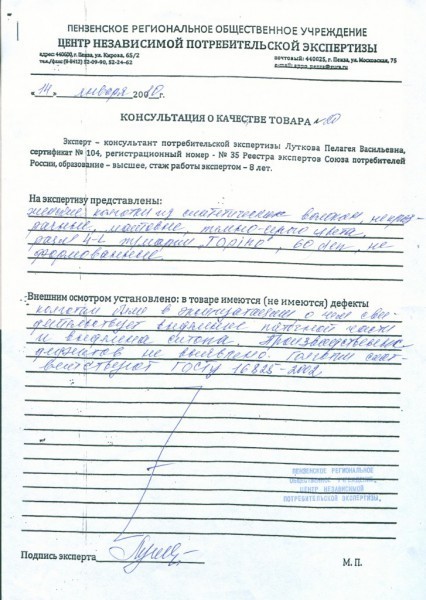 ПЕНЗЕНСКОЕ РЕГИОНАЛЬНОЕ ОБЩЕСТВЕННОЕ УЧРЕЖДЕНИЕ
ЦЕНТР НЕЗАВИСИМОЙ ПОТРЕБИТЕЛЬСКОЙ ЭКСПЕРТИЗЫ
адрес: 440600, г. Пенза, ул. Кирова, 65/2
тел./факс (8-8412) 52-09-90, 52-24-62
почтовый: 440025, г. Пенза, ул. Московская, 75
«14» января 2010г.
КОНСУЛЬТАЦИЯ О КАЧЕСТВЕ ТОВАРА
Эксперт – консультант потребительской экспертизы Луткова Пелагея Васильевна,
сертификат № 104, регистрационный номер - № 35 Реестра экспертов Союза потребителей
России, образование – высшее, стаж работы экспертом – 8 лет.
На экспертизу представлены:
женские колготки из синтетических волокон,
темно-серого цвета,
60 den, не
формованные.
Внешним осмотром установлено: в товаре имеются (не имеются) дефекты
колготки были в эксплуатации о чем сви-
детельствует пяточной части
и Производственных
дефектов не выявлено. соот-
ветствуют ГОСТу
ПЕНЗЕНСКОЕ РЕГИОНАЛЬНОЕ
ОБЩЕСТВЕННОЕ УЧРЕЖДЕНИЕ,
ЦЕНТР НЕЗАВИСИМОЙ
ПОТРЕБИТЕЛЬСКОЙ ЭКСПЕРТИЗЫ,
Подпись эксперта
М. П.